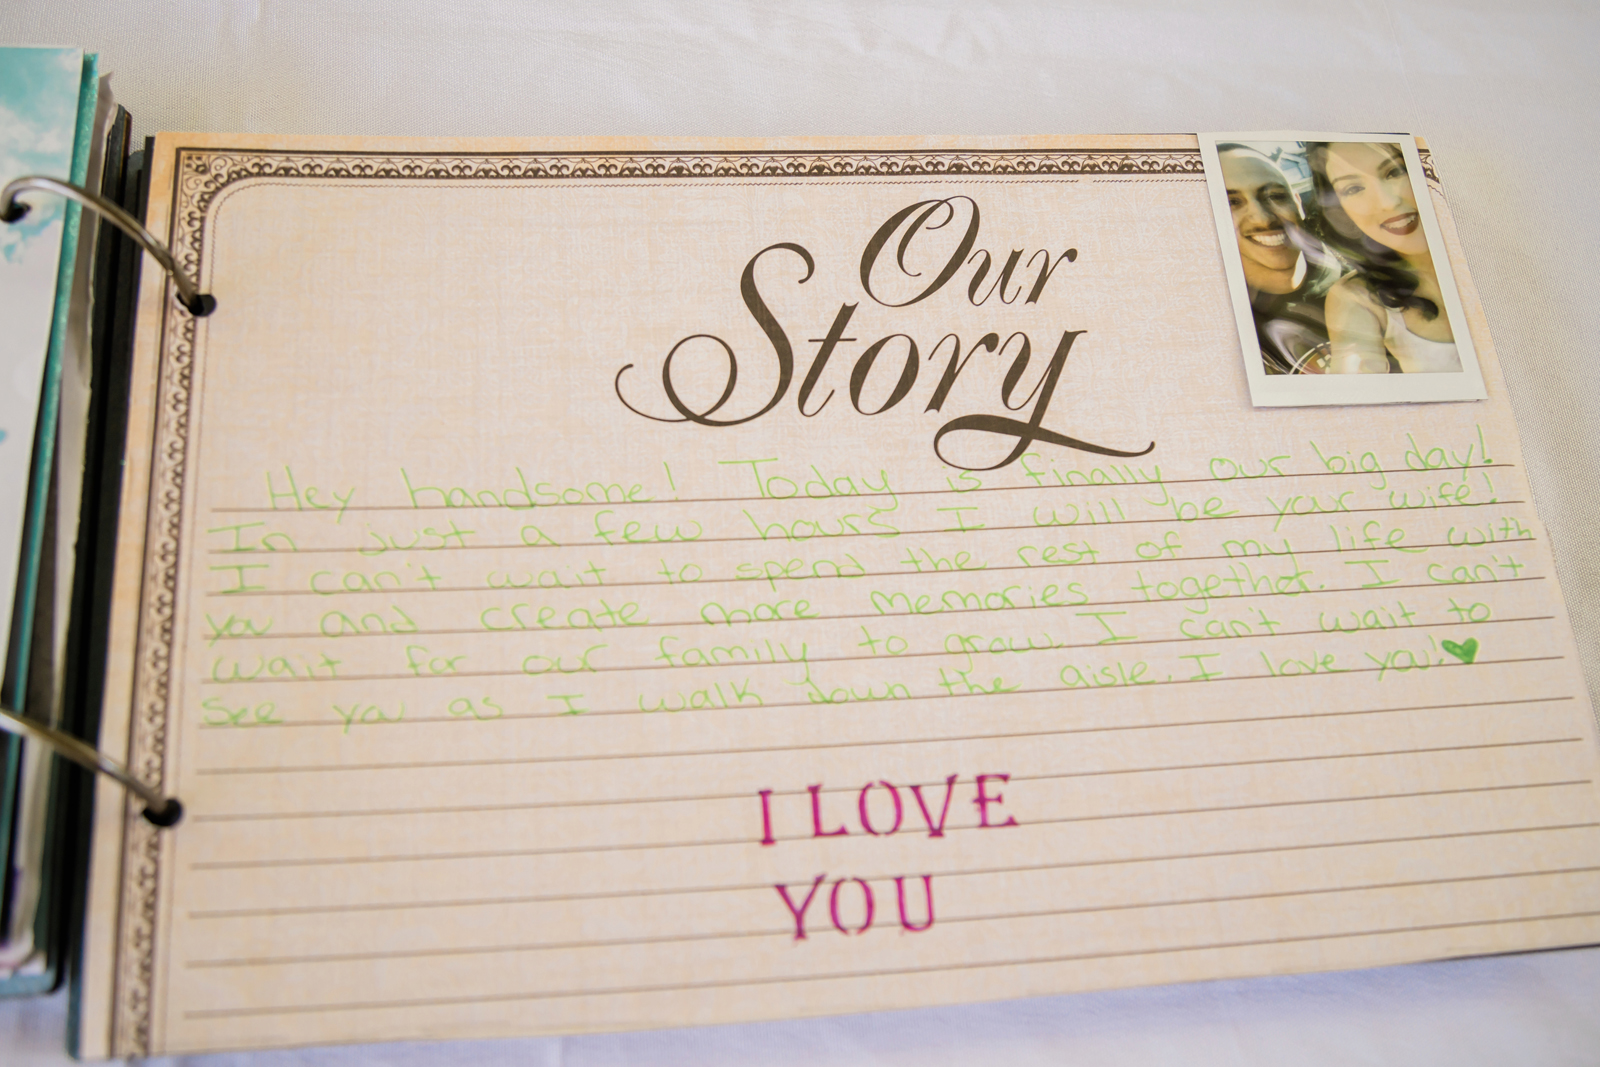 Our
Story
Hey handsome! Today is finally our big day!
In just a few hours I will be your wife!
I can't wait to spend the rest of my life with
you and create more memories together. I can't
wait for our family to grow. I can't wait to
see you as I walk down the aisle. I love you!♥
I LOVE
YOU